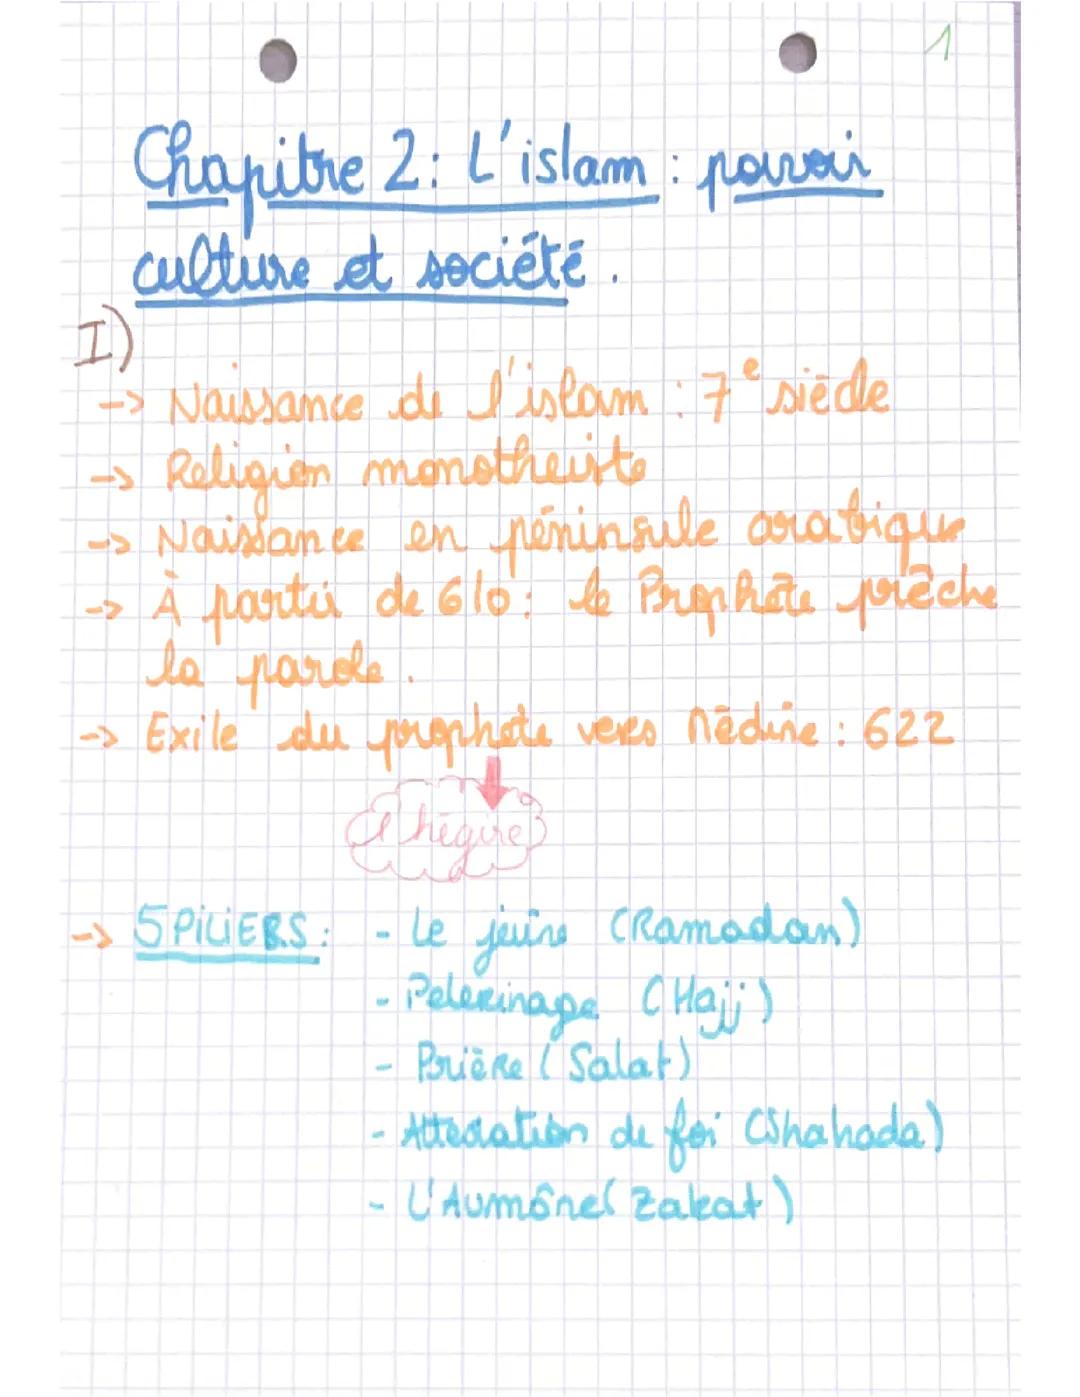 1
Chapitre 2: L'islam : pouvoir
culture et société.
I)
-> Naissance de l'islam : 7e siècle
-> Religion monotheiste
-> Naissance en péninsule arabique
-> À partir de 610: le Prophète prêche
la parole.
-> Exile du prophète vers Médine : 622
l'hégire
-> 5 PiLiERS: - Le jeûne (Ramadan)
- Pelerinage (Hajj)
- Prière (Salat)
- Attestation de foi (Shahada)
- L'Aumône (Zakat)